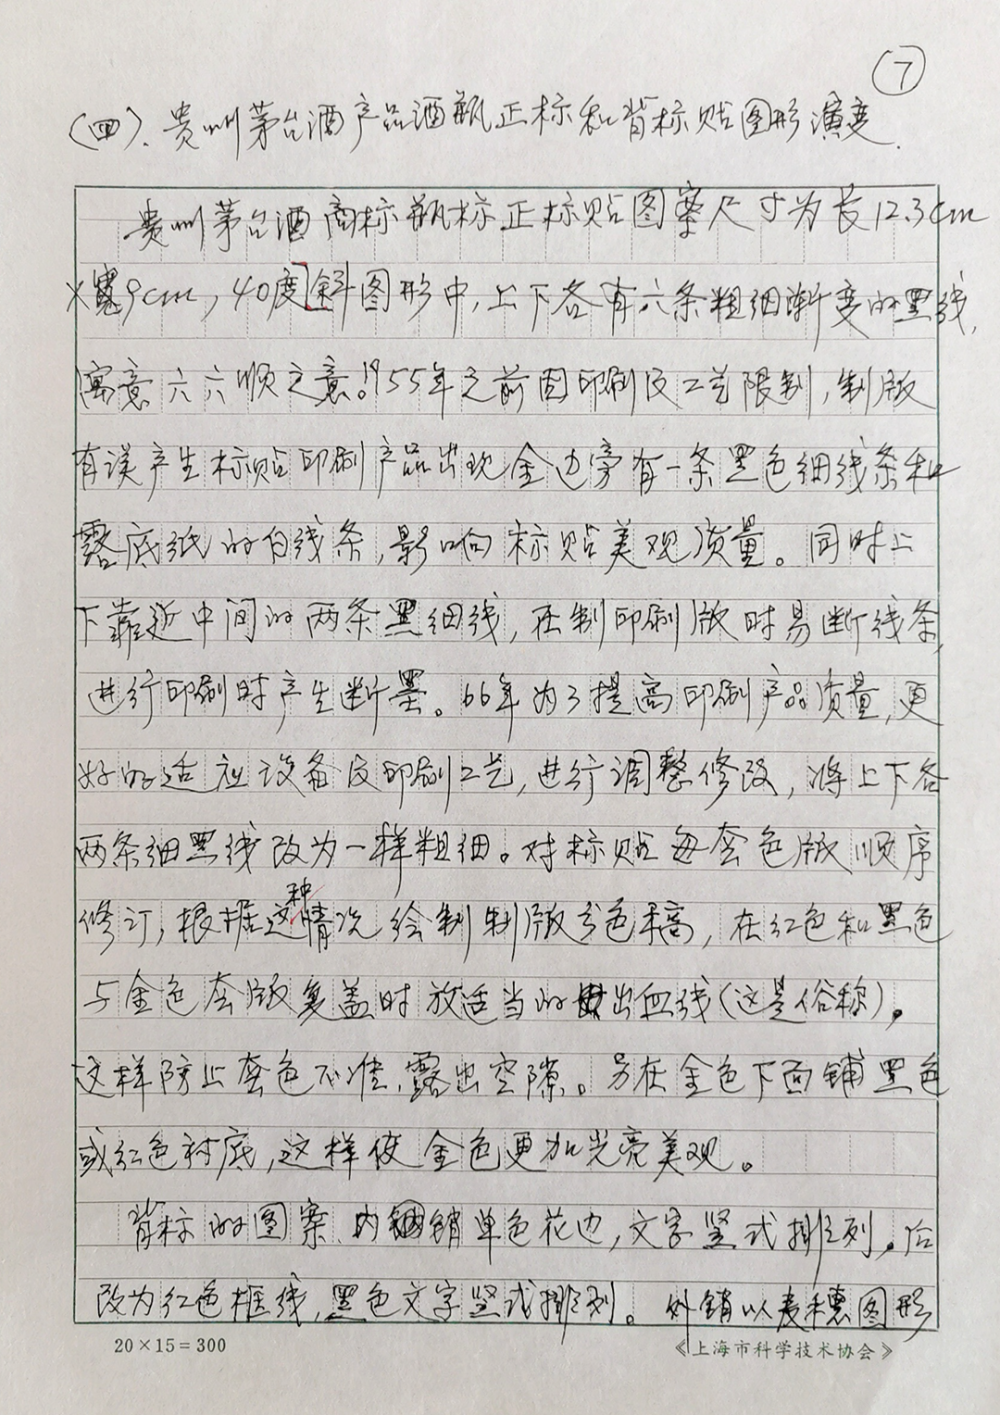 ⑦
(四). 贵州茅台酒产品酒瓶正标和背标贴图形演变.
贵州茅台酒商标瓶标正标贴图案尺寸为长12.3cm
×宽9cm, 40度斜图形中, 上下各有六条粗细渐变的黑线,
寓意六六顺之意。1955年之前因印刷及工艺限制, 制版
有误产生标贴印刷产品出现金边旁有一条黑色细线条和
露底纸的白线条, 影响标贴美观质量。同时上
下靠近中间的两条黑细线, 在制印刷版时易断线条,
进行印刷时产生断墨。66年为了提高印刷产品质量, 更
好的适应设备及印刷工艺, 进行调整修改, 将上下各
两条细黑线改为一样粗细。对标贴每套色版顺序
修订, 根据这种情况绘制制版分色稿, 在红色和黑色
与金色套版复盖时放适当的出血线(这是俗称)。
这样防止套色不准, 露出空隙。另在金色下面铺黑色
或红色衬底, 这样使金色更加光亮美观。
背标的图案内销单色花边, 文字竖式排列。后
改为红色框线, 黑色文字竖式排列。外销以麦穗图形
20×15=300
《上海市科学技术协会》